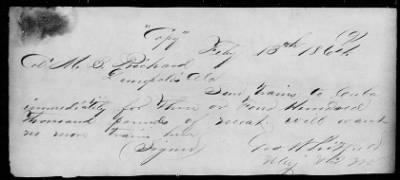 "Copy"
Feby 13th 1864
Col. M. B.
Demopolis Ala
Send trains to Cuba
immediately for three or Four Hundred
thousand pounds of meat, will want
no more trains here
(Signed) Geo Whitfield
Maj &